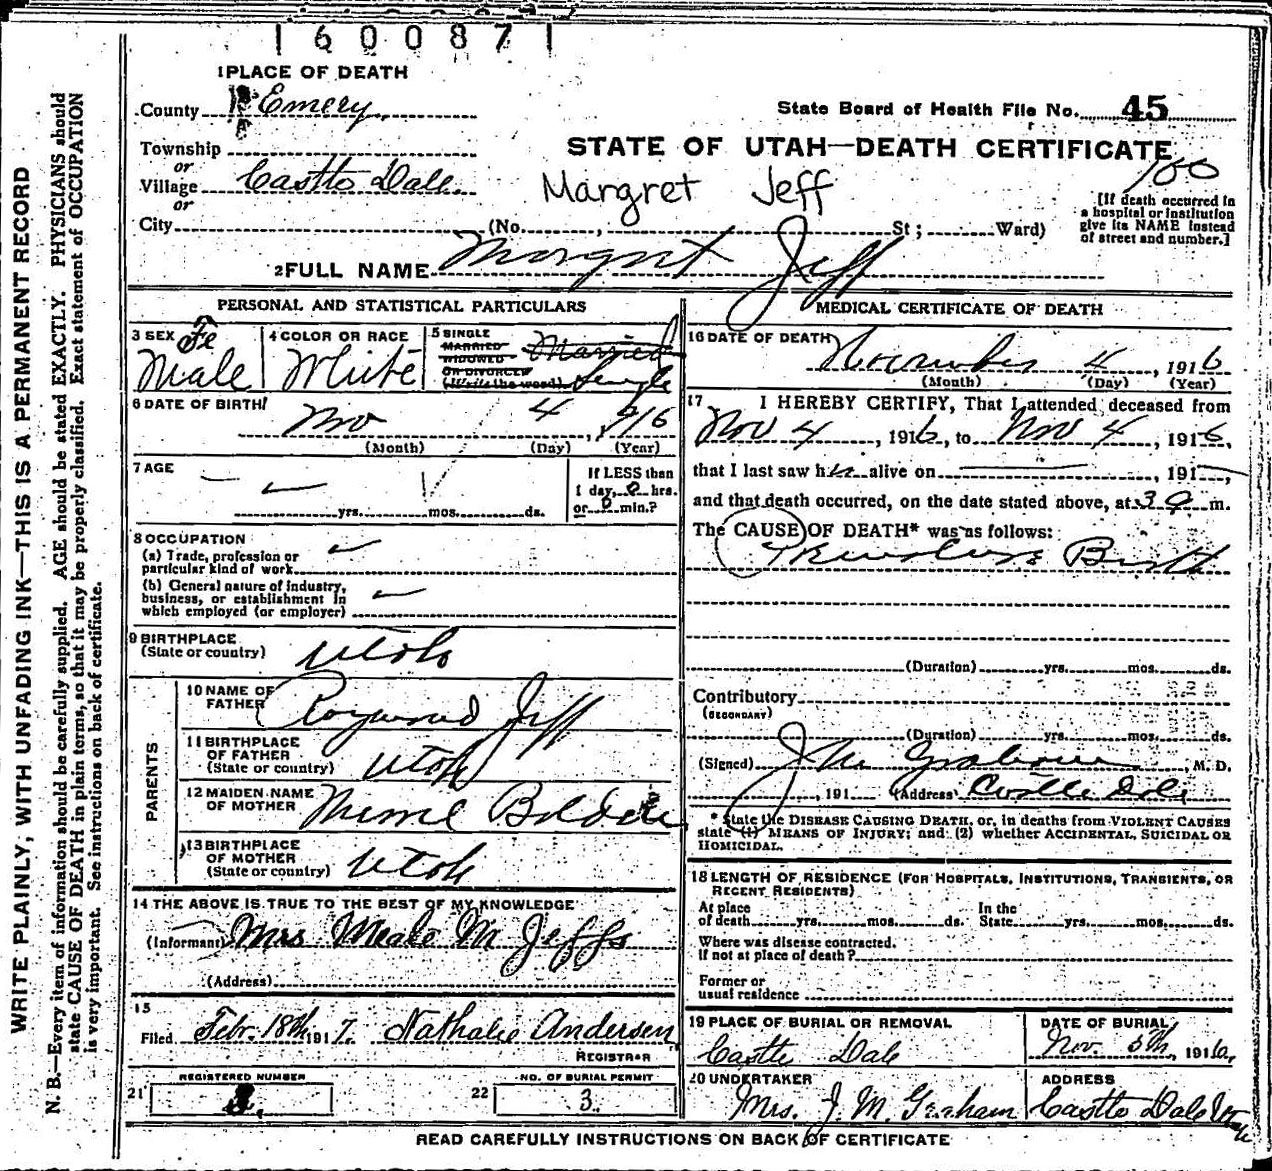 1600871
1 PLACE OF DEATH
County Emery,
State Board of Health File No. 45
Township
or
Village Castle Dale
or
City
STATE OF UTAH—DEATH CERTIFICATE
100
Margret Jeff
(No. , St; Ward)
[If death occurred in
a hospital or institution
give its NAME instead
of street and number.]
2 FULL NAME Margret Jeff
PERSONAL AND STATISTICAL PARTICULARS
3 SEX Fe
Male
4 COLOR OR RACE
White
5 SINGLE
MARRIED
WIDOWED
OR DIVORCED
(Write the word)
Married
Single
6 DATE OF BIRTH
Nov 4, 916
(Month) (Day) (Year)
7 AGE
yrs. mos. ds.
If LESS than
1 day, 0 hrs.
or 0 min.?
8 OCCUPATION
(a) Trade, profession or
particular kind of work
(b) General nature of industry,
business, or establishment in
which employed (or employer)
9 BIRTHPLACE
(State or country) Utah
PARENTS
10 NAME OF
FATHER Raymond Jeff
11 BIRTHPLACE
OF FATHER
(State or country) Utah
12 MAIDEN NAME
OF MOTHER
13 BIRTHPLACE
OF MOTHER
(State or country) Utah
14 THE ABOVE IS TRUE TO THE BEST OF MY KNOWLEDGE
(Informant) Mrs M Jeffs
(Address)
15
Filed Feb. 18th 1917. Nathalie Andersen
REGISTRAR
REGISTERED NUMBER
21
NO. OF BURIAL PERMIT
22 3
MEDICAL CERTIFICATE OF DEATH
16 DATE OF DEATH
November 4, 1916
(Month) (Day) (Year)
17 I HEREBY CERTIFY, That I attended deceased from
Nov 4, 1916, to Nov 4, 1916,
that I last saw her alive on , 191 ,
and that death occurred, on the date stated above, at 3 a m.
The CAUSE OF DEATH* was as follows:
Premature Birth
(Duration) yrs. mos. ds.
Contributory
(SECONDARY)
(Duration) yrs. mos. ds.
(Signed) , M. D.
, 191 (Address) Castle Dale
* State the DISEASE CAUSING DEATH, or, in deaths from VIOLENT CAUSES
state (1) MEANS OF INJURY; and (2) whether ACCIDENTAL, SUICIDAL OR
HOMICIDAL.
18 LENGTH OF RESIDENCE (FOR HOSPITALS, INSTITUTIONS, TRANSIENTS, OR
RECENT RESIDENTS)
At place In the
of death yrs. mos. ds. State yrs. mos. ds.
Where was disease contracted.
If not at place of death?
Former or
usual residence
19 PLACE OF BURIAL OR REMOVAL
Castle Dale
DATE OF BURIAL
Nov. 5th, 1916,
20 UNDERTAKER
Mrs. J. M. Graham
ADDRESS
Castle Dale Utah
READ CAREFULLY INSTRUCTIONS ON BACK OF CERTIFICATE
WRITE PLAINLY, WITH UNFADING INK—THIS IS A PERMANENT RECORD
N. B.—Every item of information should be carefully supplied. AGE should be stated EXACTLY. PHYSICIANS should
state CAUSE OF DEATH in plain terms, so that it may be properly classified. Exact statement of OCCUPATION
is very important. See instructions on back of certificate.